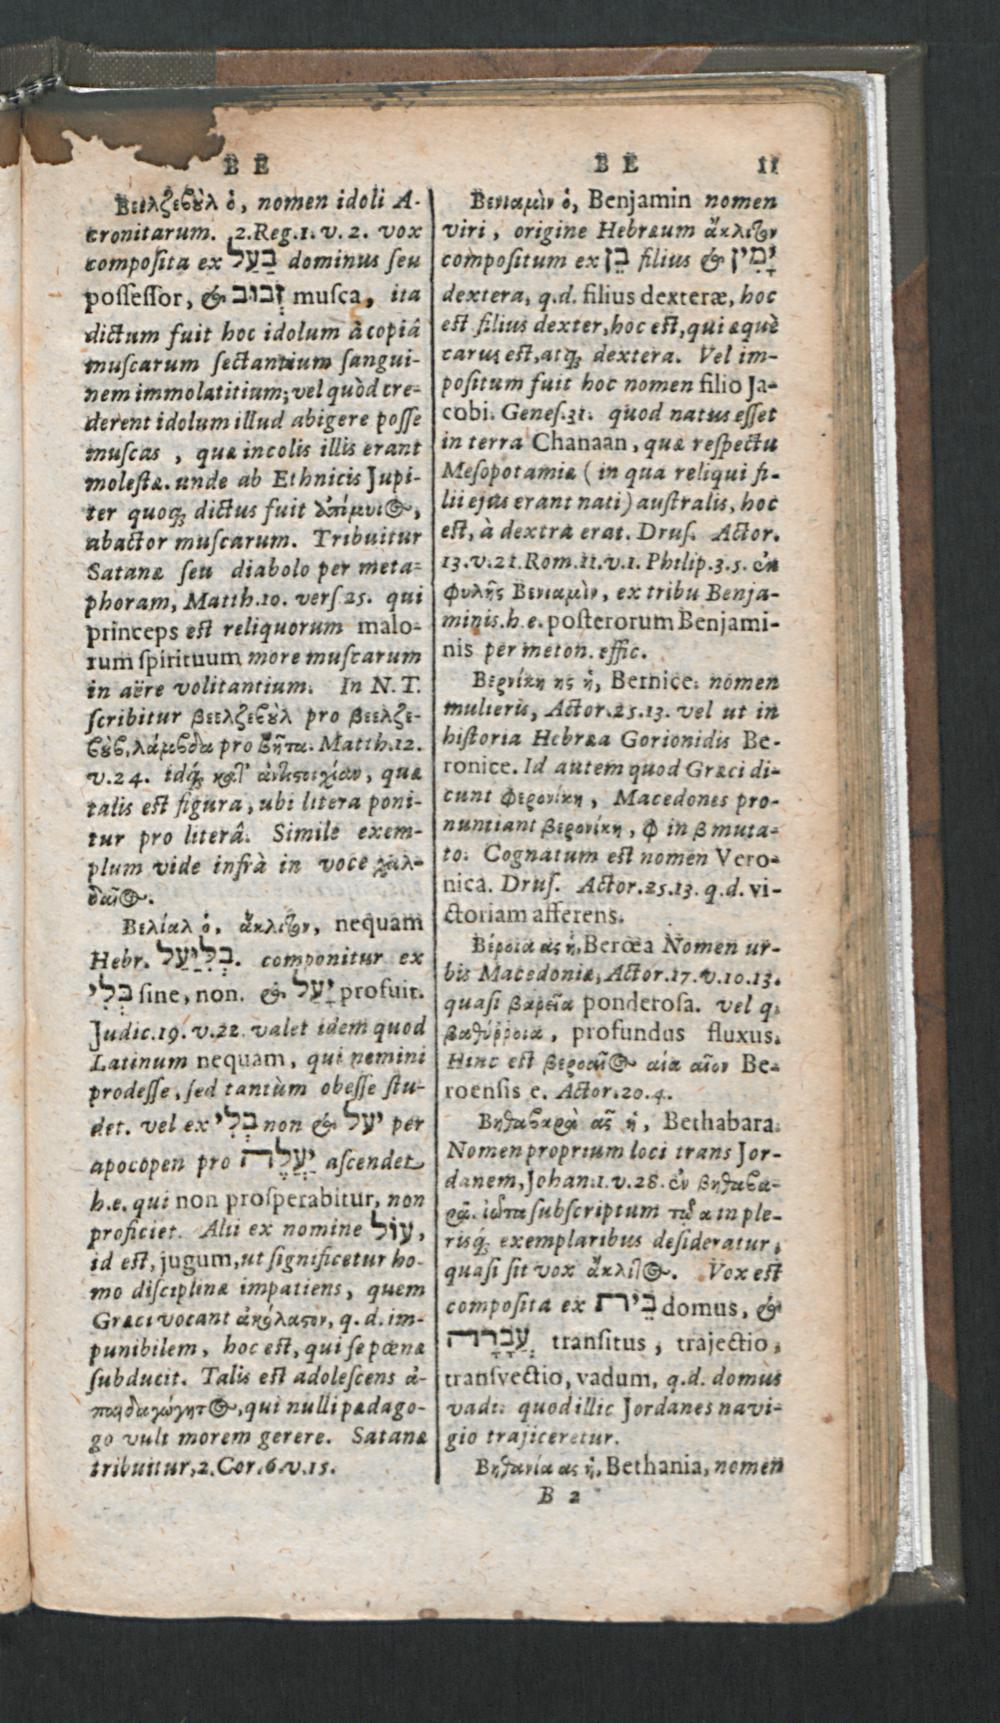 B E
Βεελζεβοὺλ ὁ, nomen idoli A-
cronitarum. 2.Reg.1. v. 2. vox
composita ex בַּעַל dominus seu
possessor, & זְבוּב musca, ita
dictum fuit hoc idolum à copiâ
muscarum sectantium sangui-
nem immolatitium; vel quòd cre-
derent idolum illud abigere posse
muscas , quæ incolis illis erant
molestæ. unde ab Ethnicis Jupi-
ter quoq; dictus fuit ἀπόμυι⊕,
abactor muscarum. Tribuitur
Satanæ seu diabolo per meta-
phoram, Matth.10. vers 25. qui
princeps est reliquorum malo-
rum spirituum more muscarum
in aëre volitantium. In N.T.
scribitur βεελζεβοὺλ pro βεελζε-
βοὺβ, λάμβδα pro βῆτα. Matth.12.
v.24. idq́; κατ' ἀντιστοιχίαν, quæ
talis est figura, ubi litera poni-
tur pro literâ. Simile exem-
plum vide infrà in voce χαλ-
δαῖ⊕.
Βελίαλ ὁ, ἄκλιτον, nequam
Hebr. בְּלִיַּעַל. componitur ex
בְּלִי sine, non. & יַעַל profuit.
Judic.19. v.22. valet idem quod
Latinum nequam, qui nemini
prodesse, sed tantùm obesse stu-
det. vel ex בְּלִי non & יעל per
apocopen pro יַעֲלֶה ascendet
h.e. qui non prosperabitur, non
proficiet. Alii ex nomine עוֹל,
id est, jugum, ut significetur ho-
mo disciplinæ impatiens, quem
Græci vocant ἀκόλαστον, q.d. im-
punibilem, hoc est, qui se pœnæ
subducit. Talis est adolescens ἀ-
παιδαγώγητ⊕, qui nulli pædago-
go vult morem gerere. Satanæ
tribuitur, 2.Cor.6.v.15.
B E 11
Βενιαμὶν ὁ, Benjamin nomen
viri, origine Hebræum ἄκλιτον
compositum ex בֵּן filius & יָמִין
dextera, q.d. filius dexteræ, hoc
est filius dexter, hoc est, qui æquè
carus est, atq; dextera. Vel im-
positum fuit hoc nomen filio Ja-
cobi. Genes.31. quod natus esset
in terra Chanaan, quæ respectu
Mesopotamiæ (in qua reliqui fi-
lii ejus erant nati) australis, hoc
est, à dextra erat. Drus. Actor.
13.v.21.Rom.11.v.1. Philip.3.5. ἐκ
φυλῆς Βενιαμὶν, ex tribu Benja-
minis. h.e. posterorum Benjami-
nis per meton. effic.
Βερνίκη ης ἡ, Bernice: nomen
mulieris, Actor.25.13. vel ut in
historia Hebræa Gorionidis Be-
ronice. Id autem quod Græci di-
cunt φερονίκη, Macedones pro-
nuntiant βερονίκη, φ in β muta-
to: Cognatum est nomen Vero-
nica. Drus. Actor.25.13. q.d. vi-
ctoriam afferens.
Βέροια ας ἡ, Berœa Nomen ur-
bis Macedoniæ, Actor.17.v.10.13.
quasi βαρεῖα ponderosa. vel q.
βαθύρροια, profundus fluxus.
Hinc est βεροαῖ⊕ αία αῖον Be-
roensis e. Actor.20.4.
Βηθαβαρὰ ᾶς ἡ, Bethabara.
Nomen proprium loci trans Jor-
danem, Johan.1.v.28. ἐν βηθαβα-
ρᾶ. ἰῶτα subscriptum τῷ α in ple-
risq́; exemplaribus desideratur,
quasi sit vox ἄκλιτ⊕. Vox est
composita ex בֵּית domus, &
עֲבָרָה transitus, trajectio,
transvectio, vadum, q.d. domus
vadi: quod illic Jordanes navi-
gio trajiceretur.
Βηθανία ας ἡ, Bethania, nomen
B 2